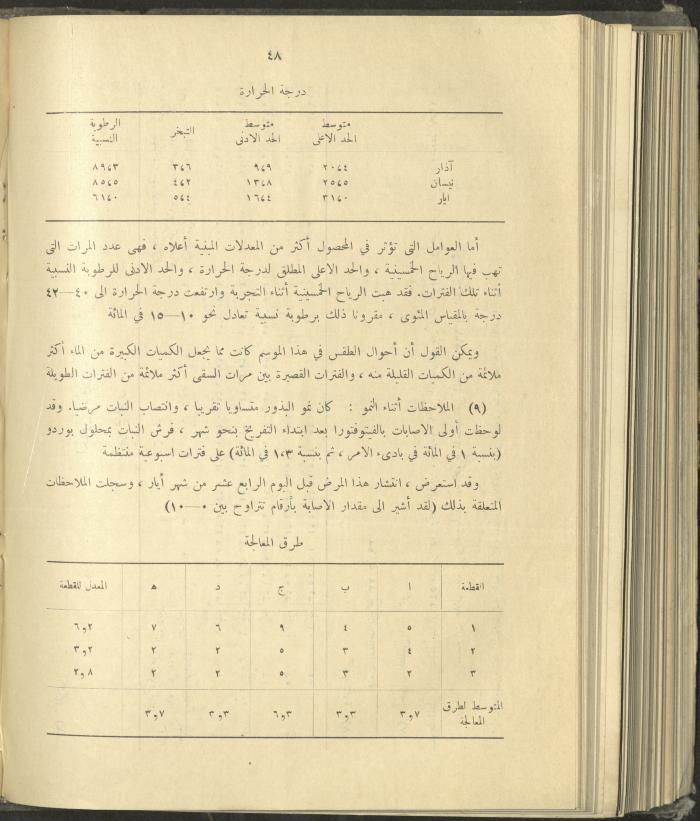 ٤٨
درجة الحرارة
متوسط الحد الاعلى متوسط الحد الادنى التبخر الرطوبة النسبية
آذار ٢٠،٤ ٩،٩ ٣،٦ ٨٩،٣
نيسان ٢٥،٥ ١٣،٨ ٤،٢ ٨٥،٥
ايار ٣١،٠ ١٦،٤ ٥،٤ ٦١،٠
أما العوامل التى تؤثر في المحصول أكثر من المعدلات المبنية أعلاه ، فهى عدد المرات التى
تهب فيها الرياح الخمسينية ، والحد الاعلى المطلق لدرجة الحرارة ، والحد الادنى للرطوبة النسبية
أثناء تلك الفترات. فقد هبت الرياح الخمسينية أثناء التجربة وارتفعت درجة الحرارة الى ٤٠—٤٢
درجة بالمقياس المئوى ، مقرونا ذلك برطوبة نسبية تعادل نحو ١٠—١٥ في المائة
ويمكن القول أن أحوال الطقس في هذا الموسم كانت مما يجعل الكميات الكبيرة من الماء أكثر
ملائمة من الكميات القليلة منه ، والفترات القصيرة بين مرات السقى أكثر ملائمة من الفترات الطويلة
(٩) الملاحظات أثناء النمو : كان نمو البذور متساويا تقريبا ، وانتصاب النبات مرضيا. وقد
لوحظت أولى الاصابات بالفيتوفتورا بعد ابتداء التفريخ بنحو شهر ، فرش النبات بمحلول بوردو
(بنسبة ١ في المائة في بادىء الامر ، ثم بنسبة ١،٣ في المائة) على فترات اسبوعية منتظمة
وقد استعرض ، انتشار هذا المرض قبل اليوم الرابع عشر من شهر أيار ، وسجلت الملاحظات
المتعلقة بذلك (لقد أشير الى مقدار الاصابة بأرقام تتراوح بين ٠—١٠)
طرق المعالجة
القطعة ا ب ج د ه المعدل للقطعة
١ ٥ ٤ ٩ ٦ ٧ ٢و٦
٢ ٤ ٣ ٥ ٢ ٢ ٢و٣
٣ ٢ ٣ ٥ ٢ ٢ ٨و٢
المتوسط لطرق المعالجة ٧و٣ ٣و٣ ٣و٦ ٣و٣ ٧و٣